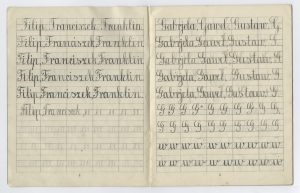 Filip, Franciszek, Franklin,
Filip, Franciszek, Franklin,
Filip, Franciszek, Franklin,
Filip, Franciszek Franklin,
Filip, Franciszek, Franklin,
Filip, Franciszek
Gabryela, Gaweł, Gustaw. G
Gabryela, Gaweł, Gustaw. G
Gabryela, Gaweł, Gustaw. G
Gabryela, Gaweł, Gustaw. G
Gabryela, Gaweł, Gustaw. G
G G G G G G G G G
G G G G G G G G G
w w w w w w w w
w w w w w w w w